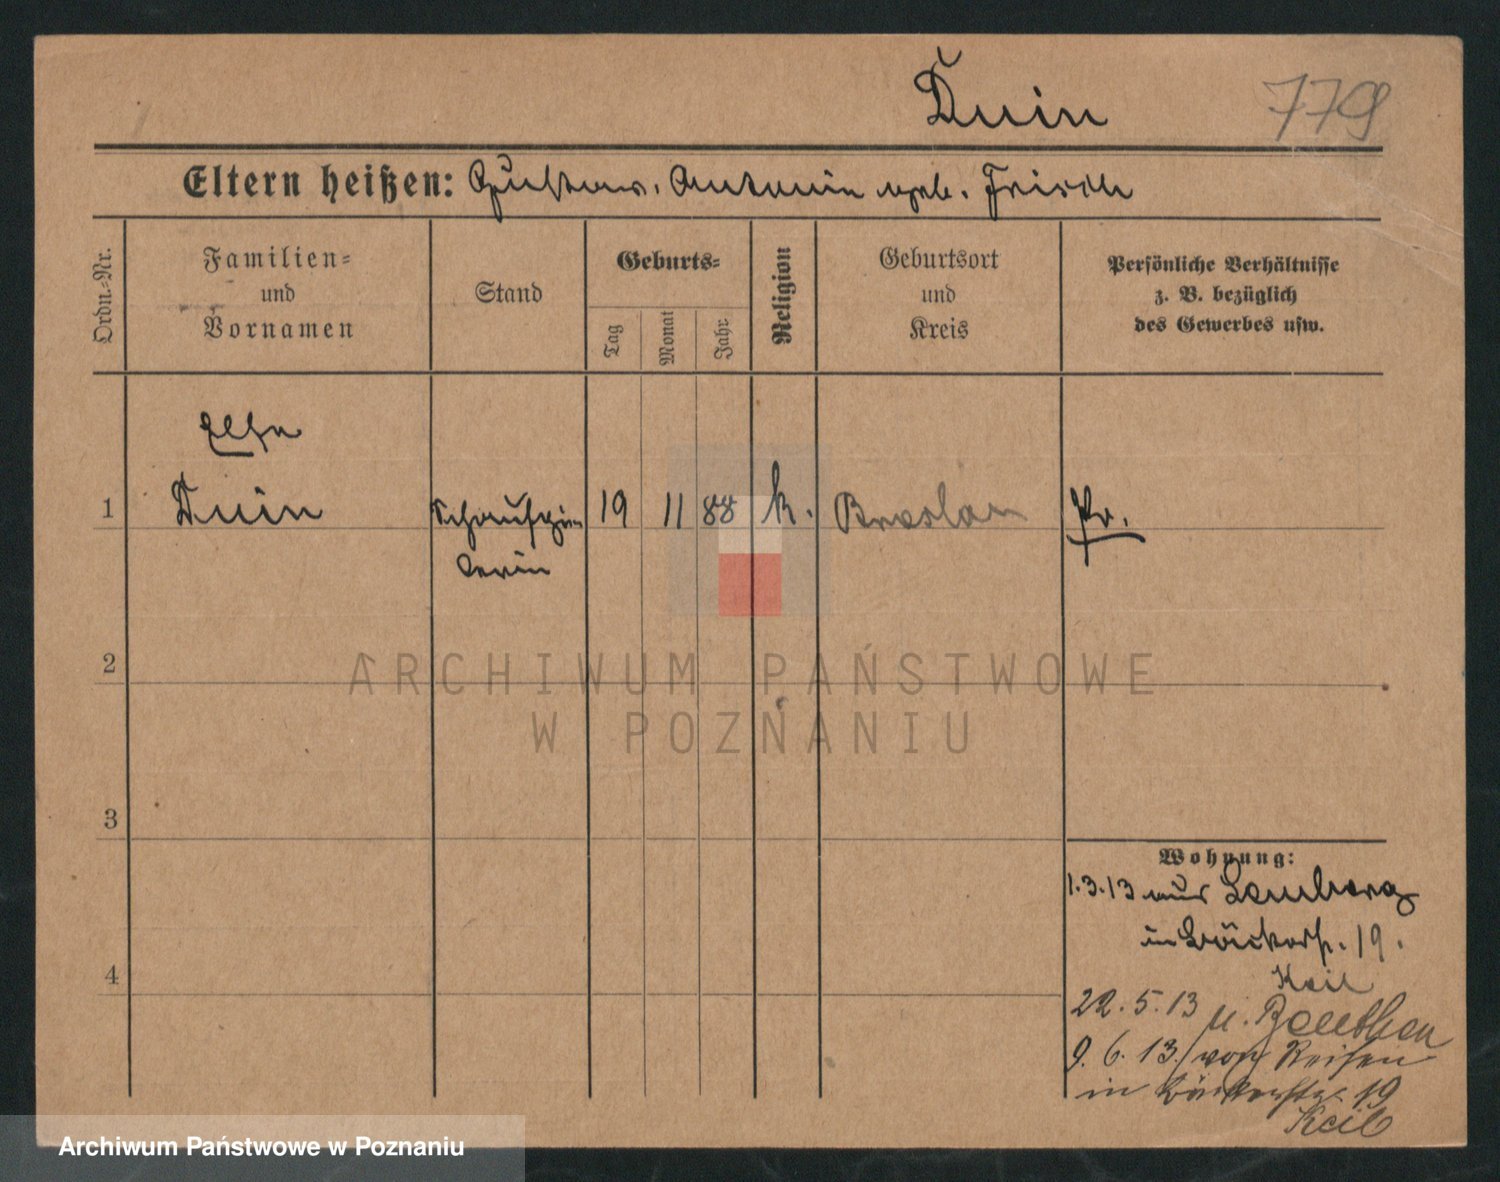 Duin 779
Eltern heißen: Gustav. Antonie geb. Frisch
Ordn.-Nr.
Familien-
und
Vornamen
Stand
Geburts-
Tag
Monat
Jahr
Religion
Geburtsort
und
Kreis
Persönliche Verhältnisse
z. B. bezüglich
des Gewerbes usw.
Elsa
1 Duin 19 11 88 k. Breslau Pr.
2
3
4
Wohnung:
1.3.13 aus Lemberg
in Bäckerstr. 19.
Keil
22. 5. 13 n. Beuthen
9. 6. 13. von Reisen
in Bäckerstr. 19
Keil
ARCHIWUM PAŃSTWOWE
W POZNANIU
Archiwum Państwowe w Poznaniu